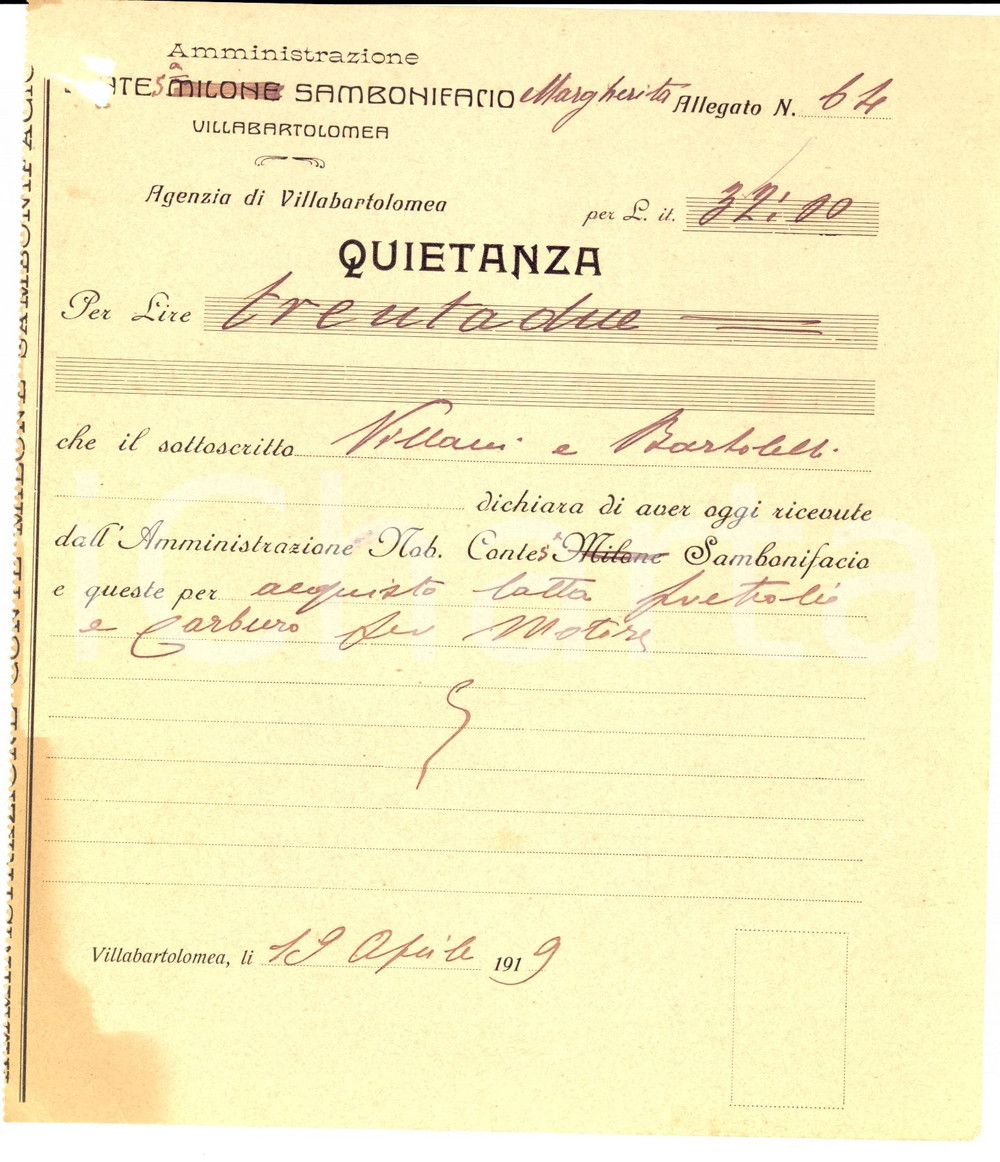 Amministrazione
NTESa MILONE SAMBONIFACIO Margherita Allegato N. 64
VILLABARTOLOMEA
Agenzia di Villabartolomea
per L. it. 32:00
QUIETANZA
Per Lire trentadue
che il sottoscritto Villani e Bartolelli
dichiara di aver oggi ricevute
dall'Amministrazione Nob. Contesa Milone Sambonifacio
e queste per acquisto latta
e Carburo per Motore
Villabartolomea, li 19 Aprile 1919
AMMINISTRAZIONE CONTE MILONE SAMBONIFACIO
iCharta